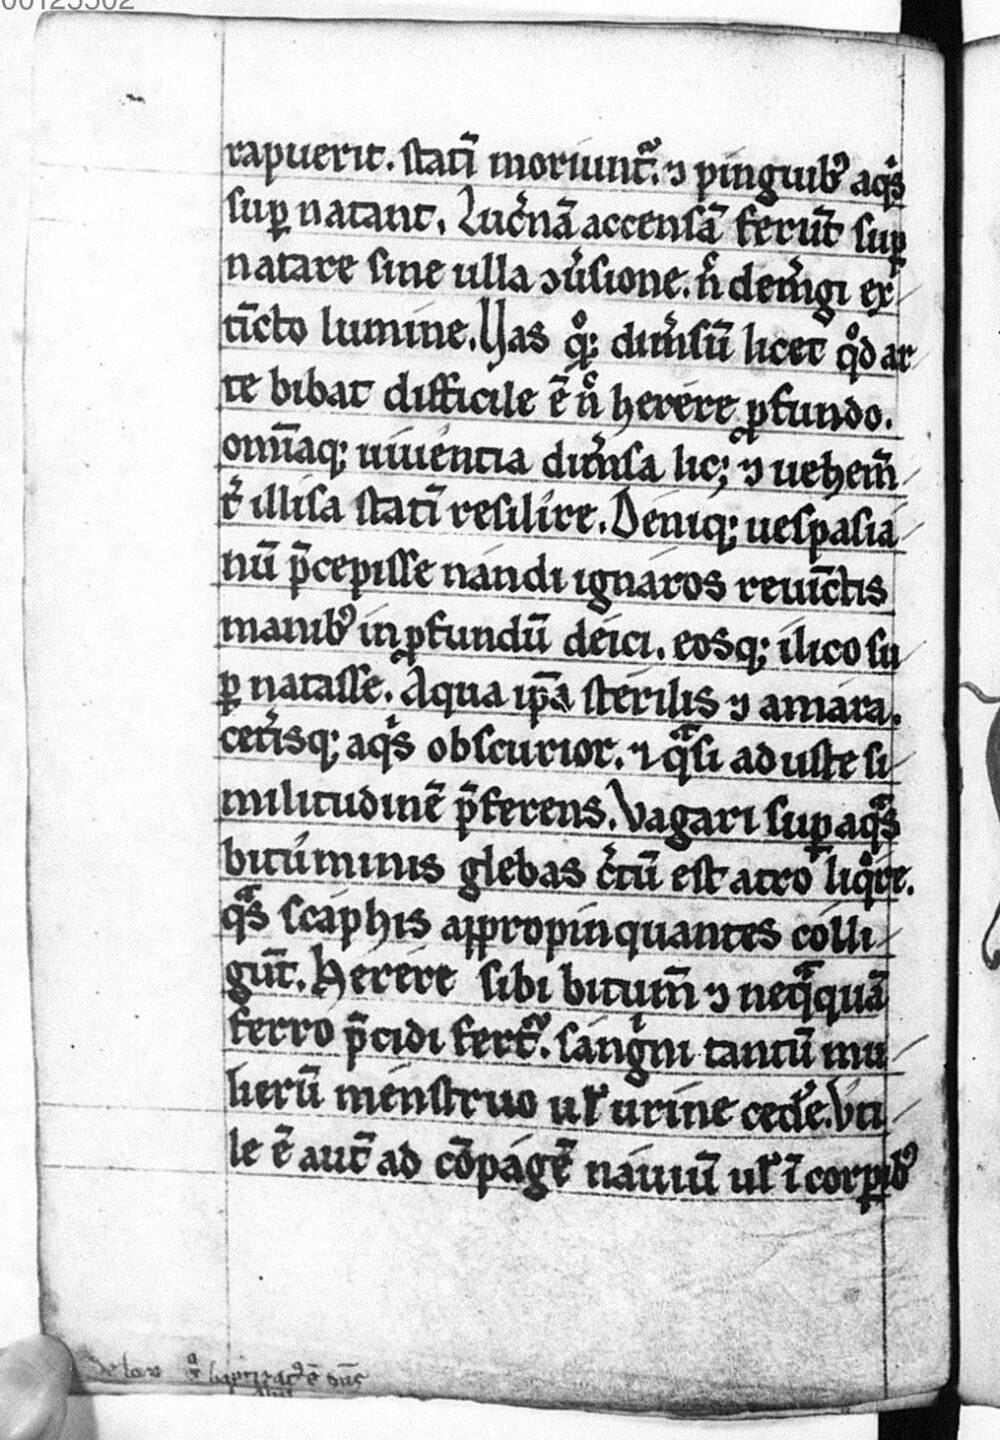 00125502
rapuerit. statī moriunt᷑. ⁊ pinguib᷒ aqͥs
suꝑ natant. Luc̓nā accensā ferūt suꝑ
natare sine ulla ɔu̓sione. n̊ dem̓gi ex
tīcto lumine. Uas qͦꝫ dim̓sū licet qͦd ar
te bibat difficile ē n̊ herere ꝓfundo.
omīaqꝫ uiuentia dim̓sa licꝫ ⁊ uehem̄
t̓ illisa statī resilire. Deniqꝫ uespasia
nū p̄cepisse nandi ignaros reuīctis
manib᷒ in ꝓfundū deici. eosqꝫ ilico su
ꝑ natasse. Aqua ip̄a sterilis ⁊ amara.
cet̓isqꝫ aqͥs obscurior. ⁊ qͣsi aduste si
militudinē p̄ferens. Vagari suꝑ aqͣs
bituminis glebas c̓tū est atro liqͦre.
qͣs scaphis appropinquantes colli
gūt. Herere sibi bitum̄ ⁊ neqͣquā
ferro p̄cidi fert᷑. sangͥni tantū mu
lierū menstruo ul̓ urine ced̓e. Vti
le ē aut̄ ad cōpagē nauiū ul̓ ī corꝑib᷒